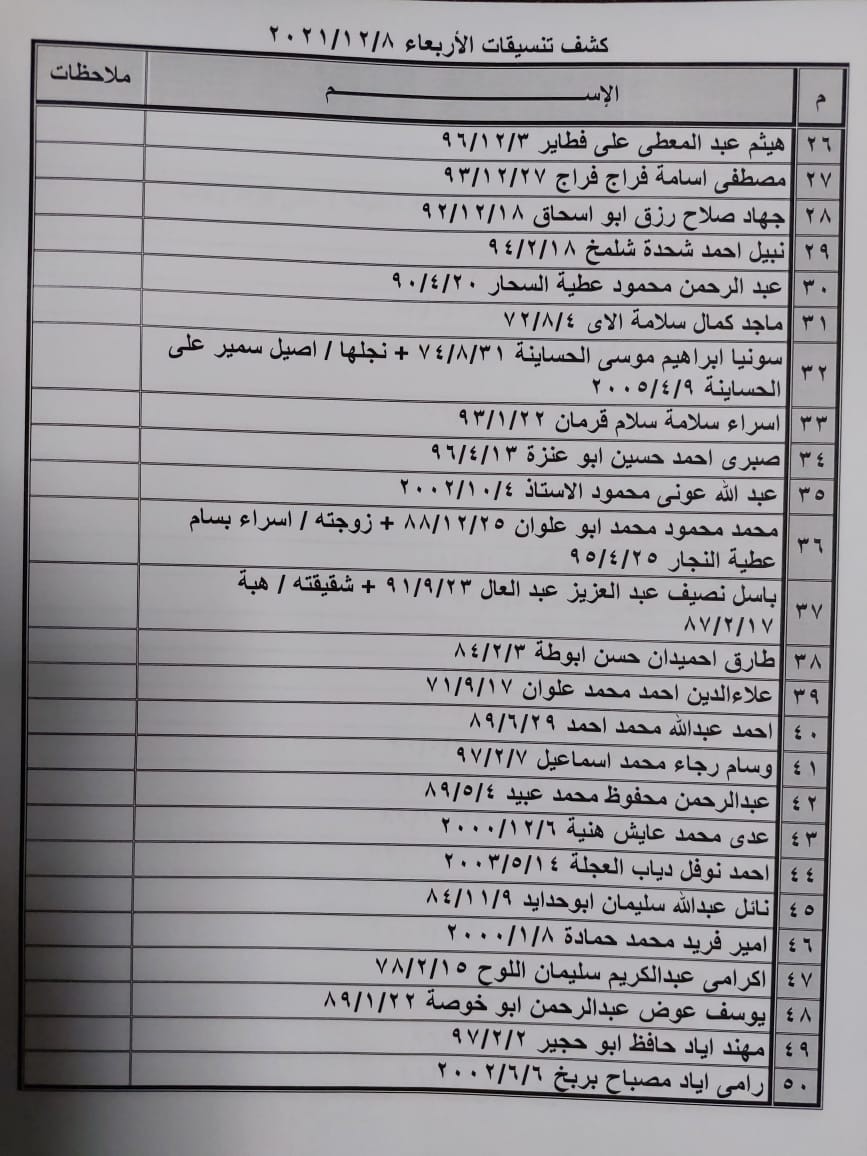 كشف تنسيقات الأربعاء ٢٠٢١/١٢/٨
م الإســـــــــــــــــــــم ملاحظات
٢٦ هيثم عبد المعطى على فطاير ٩٦/١٢/٣
٢٧ مصطفى اسامة فراج فراج ٩٣/١٢/٢٧
٢٨ جهاد صلاح رزق ابو اسحاق ٩٢/١٢/١٨
٢٩ نبيل احمد شحدة شلمخ ٩٤/٢/١٨
٣٠ عبد الرحمن محمود عطية السحار ٩٠/٤/٢٠
٣١ ماجد كمال سلامة الاى ٧٢/٨/٤
٣٢ سونيا ابراهيم موسى الحساينة ٧٤/٨/٣١ + نجلها / اصيل سمير على
الحساينة ٢٠٠٥/٤/٩
٣٣ اسراء سلامة سلام قرمان ٩٣/١/٢٢
٣٤ صبرى احمد حسين ابو عنزة ٩٦/٤/١٣
٣٥ عبد الله عونى محمود الاستاذ ٢٠٠٢/١٠/٤
٣٦ محمد محمود محمد ابو علوان ٨٨/١٢/٢٥ + زوجته / اسراء بسام
عطية النجار ٩٥/٤/٢٥
٣٧ باسل نصيف عبد العزيز عبد العال ٩١/٩/٢٣ + شقيقته / هبة
٨٧/٢/١٧
٣٨ طارق احميدان حسن ابوطة ٨٤/٢/٣
٣٩ علاءالدين احمد محمد علوان ٧١/٩/١٧
٤٠ احمد عبدالله محمد احمد ٨٩/٦/٢٩
٤١ وسام رجاء محمد اسماعيل ٩٧/٢/٧
٤٢ عبدالرحمن محفوظ محمد عبيد ٨٩/٥/٤
٤٣ عدى محمد عايش هنية ٢٠٠٠/١٢/٦
٤٤ احمد نوفل دياب العجلة ٢٠٠٣/٥/١٤
٤٥ نائل عبدالله سليمان ابوحدايد ٨٤/١١/٩
٤٦ امير فريد محمد حمادة ٢٠٠٠/١/٨
٤٧ اكرامى عبدالكريم سليمان اللوح ٧٨/٢/١٥
٤٨ يوسف عوض عبدالرحمن ابو خوصة ٨٩/١/٢٢
٤٩ مهند اياد حافظ ابو حجير ٩٧/٢/٢
٥٠ رامى اياد مصباح بربخ ٢٠٠٢/٦/٦